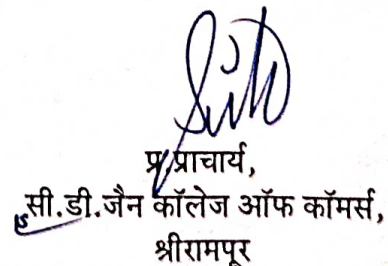 प्र.प्राचार्य,
सी.डी.जैन कॉलेज ऑफ कॉमर्स,
श्रीरामपूर